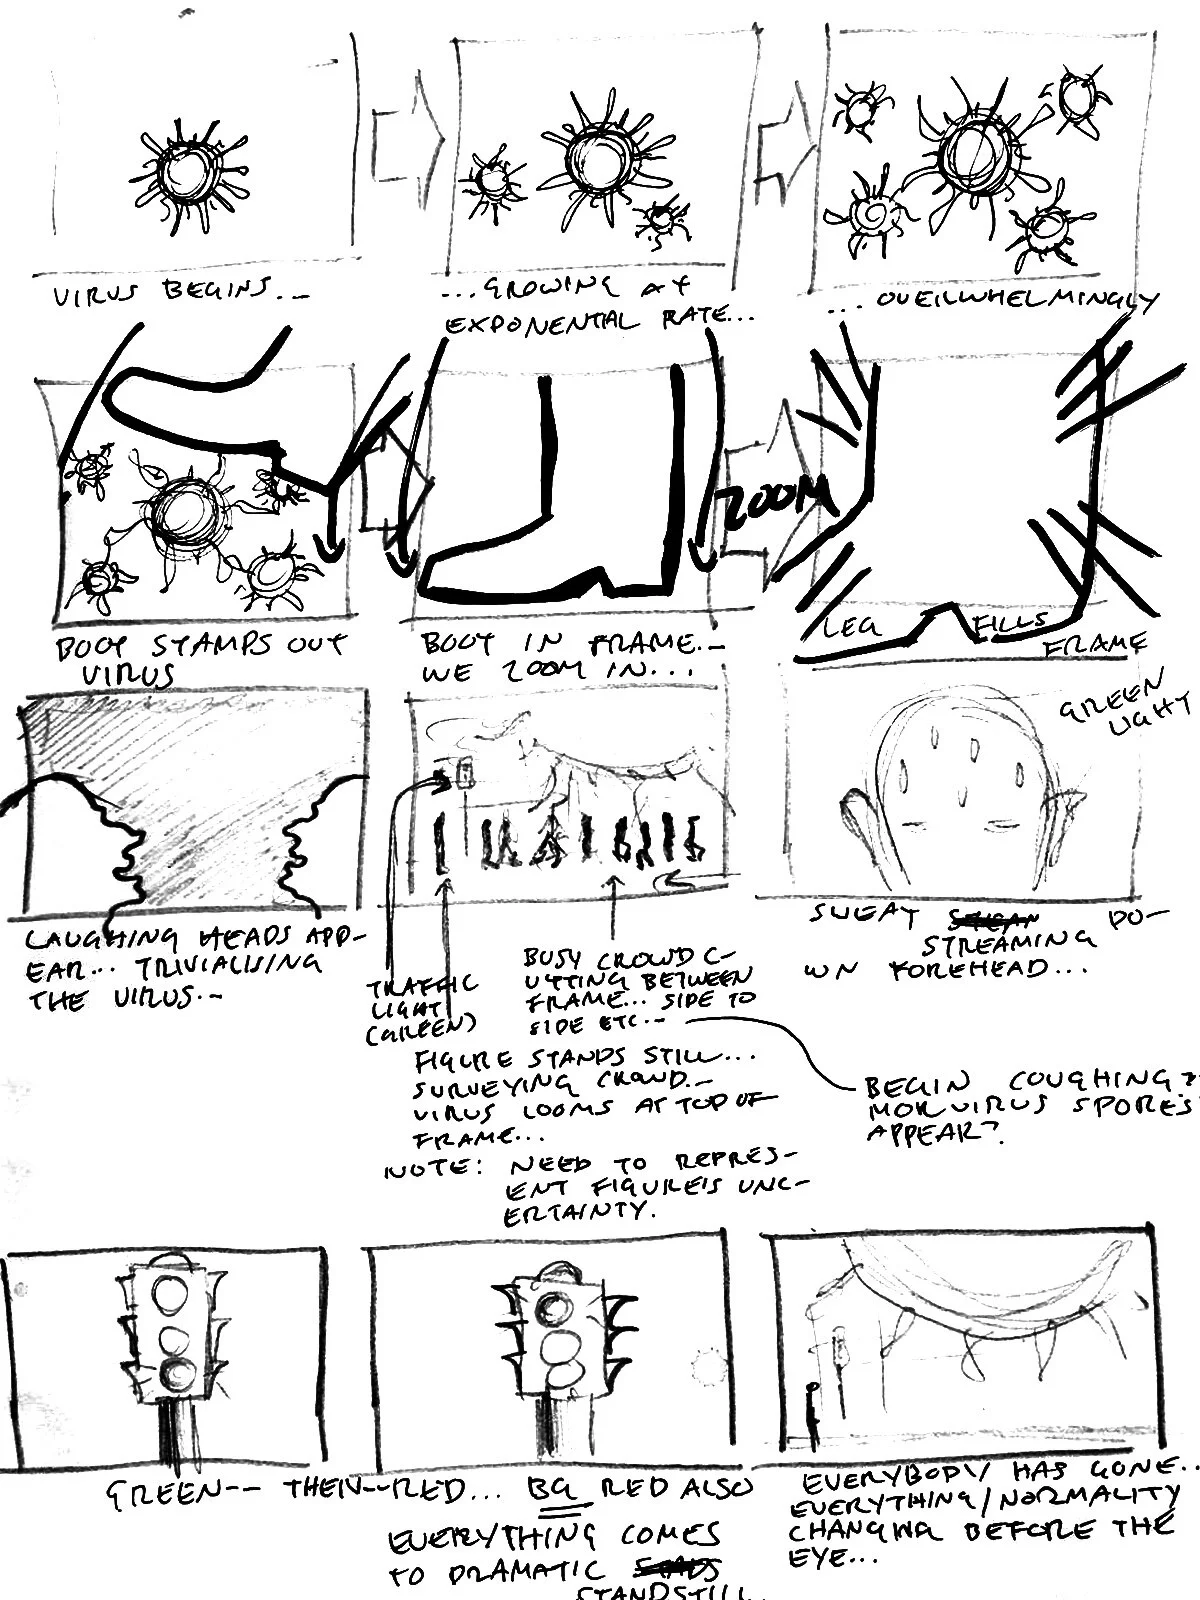 VIRUS BEGINS...
...GROWING AT
EXPONENTIAL RATE...
...OVERWHELMINGLY
ZOOM
BOOT STAMPS OUT
VIRUS
BOOT IN FRAME...
WE ZOOM IN...
LEG FILLS
FRAME
GREEN
LIGHT
LAUGHING HEADS APP-
EAR... TRIVIALISING
THE VIRUS...
TRAFFIC
LIGHT
(GREEN)
BUSY CROWD C-
UTTING BETWEEN
FRAME... SIDE TO
SIDE ETC...
FIGURE STANDS STILL...
SURVEYING CROWD...
VIRUS LOOMS AT TOP OF
FRAME...
NOTE: NEED TO REPRES-
ENT FIGURE'S UNC-
ERTAINTY.
SWEAT DO-
STREAMING
WN FOREHEAD...
BEGIN COUGHING?
MORVIRUS SPORES
APPEAR?
GREEN-- THEN--RED... BG RED ALSO
EVERYTHING COMES
TO DRAMATIC
STANDSTILL.
EVERYBODY HAS GONE..
EVERYTHING/NORMALITY
CHANGING BEFORE THE
EYE...